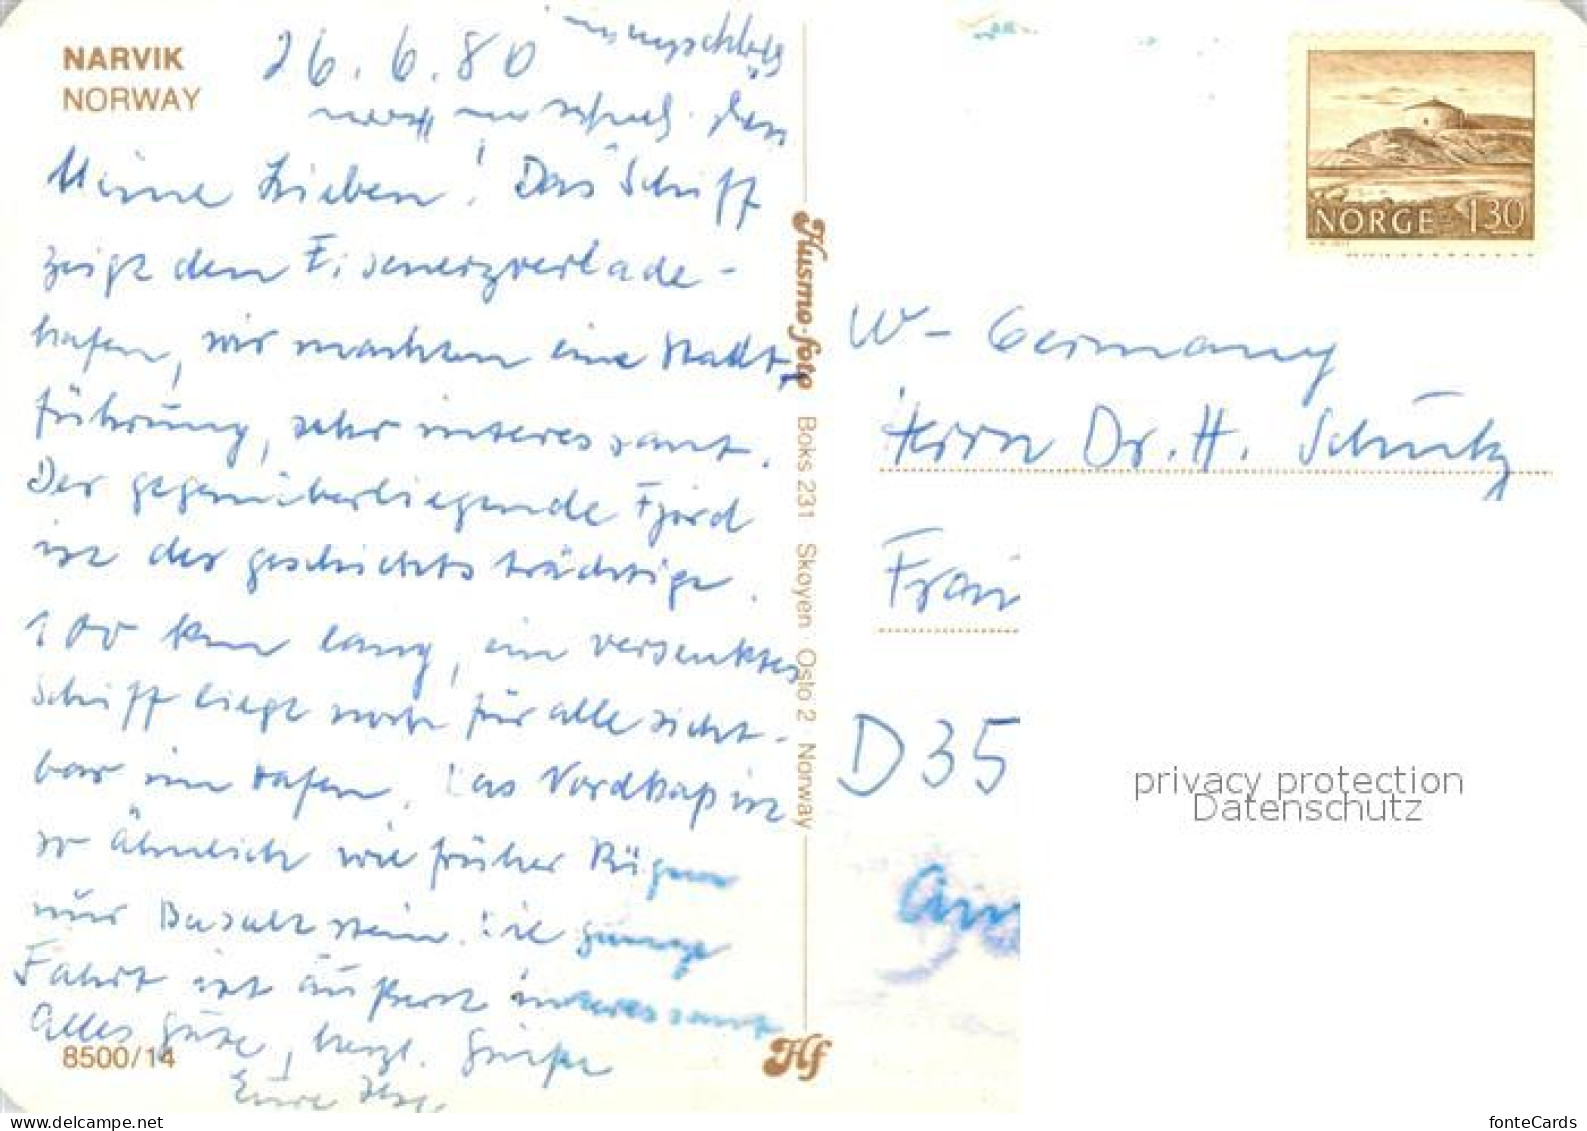 NARVIK
NORWAY
26.6.80
Meine Lieben! Das Schiff
zeigt den Eisenerzverlade-
hafen, wir machten eine Stadt-
führung, sehr interessant.
Der gegenüberliegende Fjord
ist der geschichtsträchtige.
100 km lang, ein versenktes
Schiff liegt noch für alle sicht-
bar im Hafen. Das Nordkap ist
so ähnlich wie früher Rügen
nur Basaltstein. Die ganze
Fahrt ist äußerst interessant
Alles Gute, herzl. Grüße
Eure
8500/14
Husmo-foto Boks 231 Skøyen · Oslo 2 · Norway
Hf
NORGE 130
W-Germany
Herrn Dr. H. Schütz
D 35
privacy protection
Datenschutz
delcampe.net
fonteCards